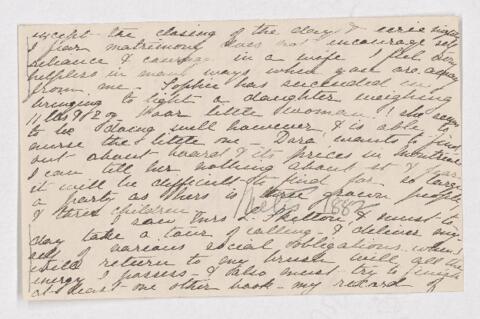 except the closing of the day & eerie night
I fear matrimony does not encourage self
reliance & courage in a wife I feel very
helpless in many ways when you are away
from me - Sophie has succeeded in
bringing to light a daughter weighing
11 lbs 9 1/2 oz - Poor little woman! she seems
to be doing well however & is able to
nurse the little one - Dora wants to find
out about board & its prices in Montreal
I can tell her nothing about it & fear
it will be difficult to find for so large
a party as theirs is three grown people
& three children.
I saw Mrs. L. Skelton & must to
day take a tour of calling - & deliver my-
self of various social obligations when I
will return to my brush with all the
energy I possess - & also must try to finish
at least one other book - my record of
1882